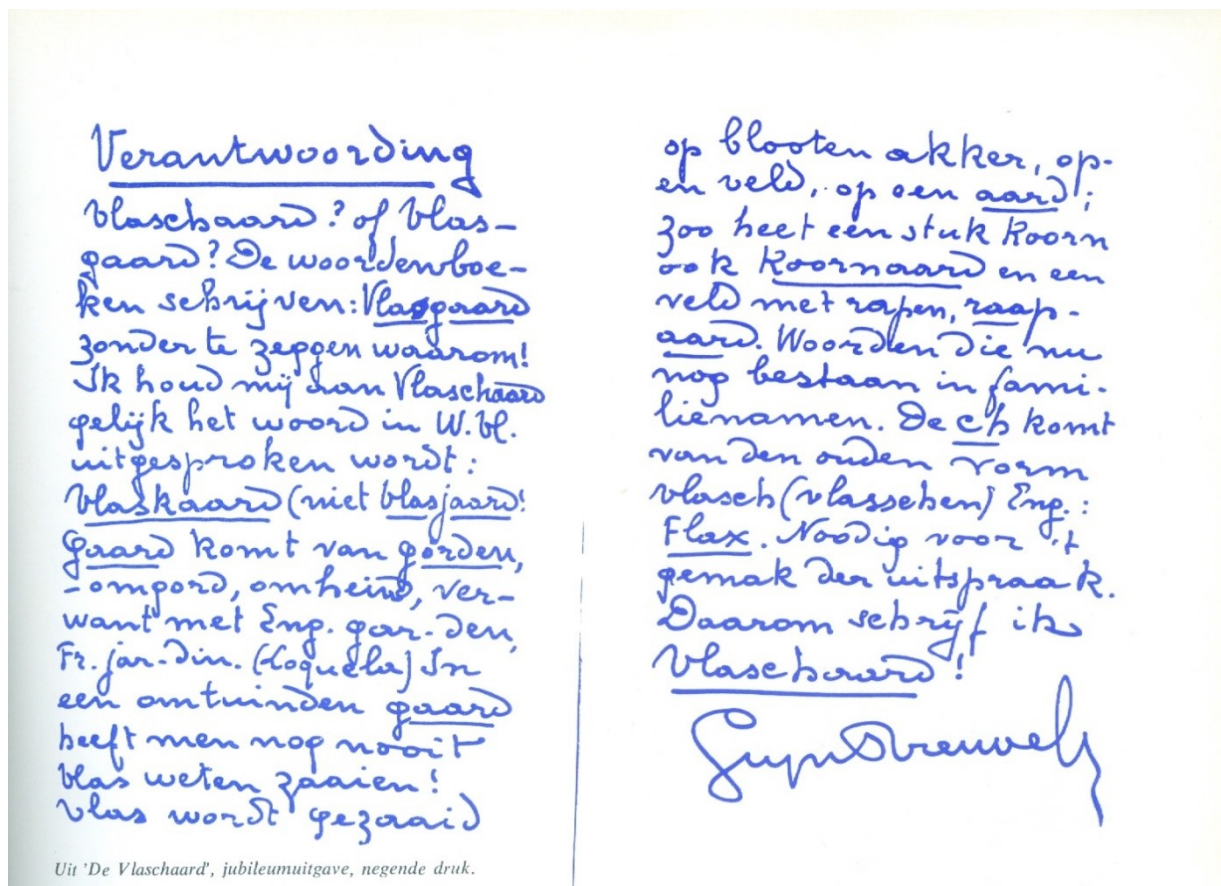 Verantwoording
Vlaschaard? of Vlas-
gaard? De woordenboe-
ken schrijven: Vlasgaard
zonder te zeggen waarom!
Ik houd mij aan Vlaschaard
gelijk het woord in W.Vl.
uitgesproken wordt:
Vlaskaard (niet vlasjaard!
Gaard komt van gorden,
- omgord, omheind, ver-
want met Eng. gar-den,
Fr. jar-din. (Loquela) In
een omtuinden gaard
heeft men nog nooit
vlas weten zaaien!
Vlas wordt gezaaid
op blooten akker, op-
en veld, op een aard;
zoo heet een stuk koorn
ook koornaard en een
veld met rapen, raap-
aard. Woorden die nu
nog bestaan in fami-
lienamen. De ch komt
van den ouden vorm
vlasch (vlasschen) Eng.:
Flax. Noodig voor 't
gemak der uitspraak.
Daarom schrijf ik
Vlaschaard!
Stijn Streuvels
Uit 'De Vlaschaard', jubileumuitgave, negende druk.